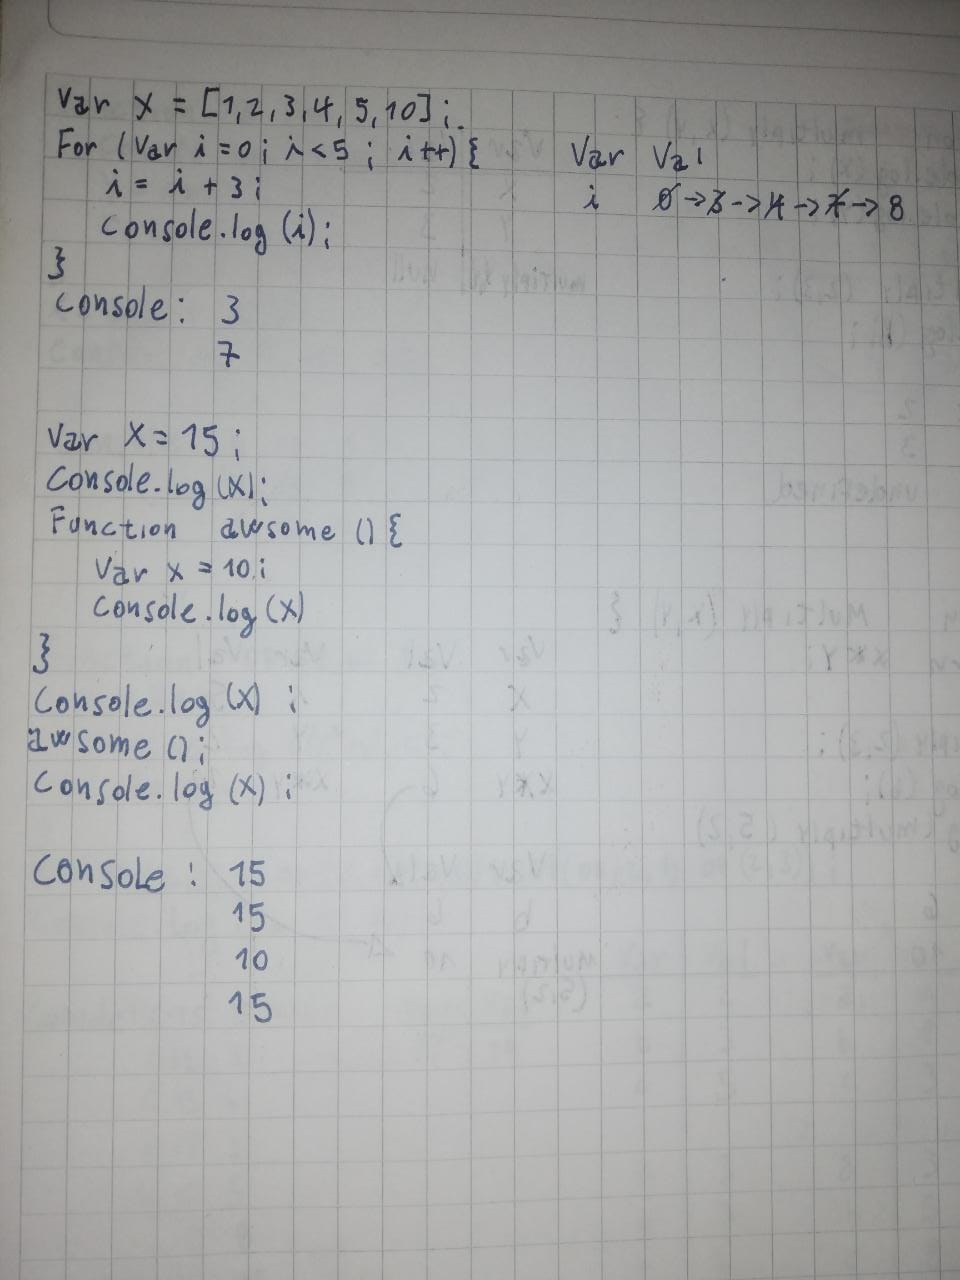 Var x = [1,2,3,4,5,10];
For (Var i=0; i<5; i++){
i = i + 3;
Console.log (i);
}
Console: 3
7
Var Val
i 0->3->4->7->8
Var X=15;
Console.log (X);
Function awsome () {
Var x = 10;
Console.log (x)
}
Console.log (x) ;
awsome ();
Console.log (x) ;
Console : 15
15
10
15